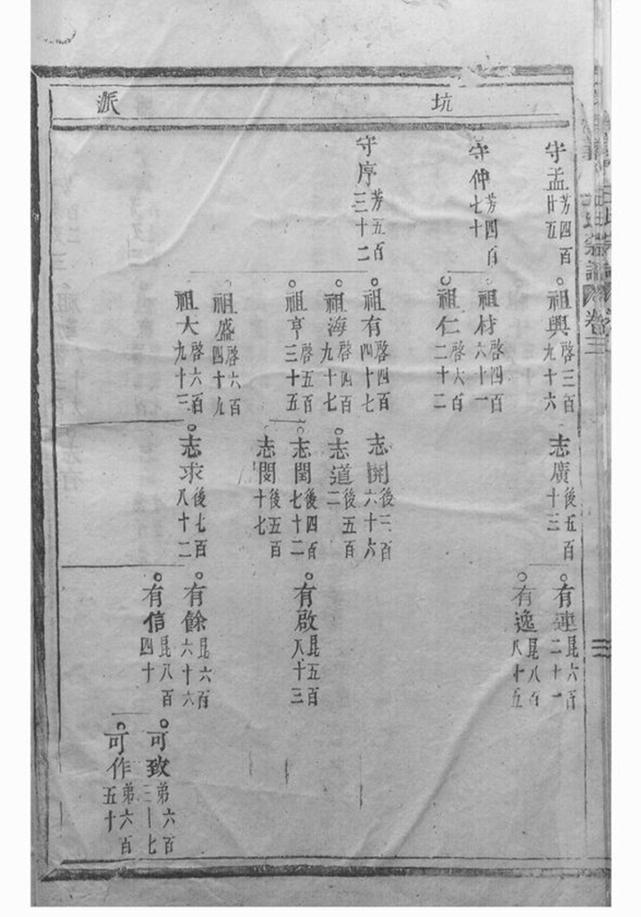 坑派
守孟芳四百廿五
守仲芳四百七十
守序芳五百三十二
祖興啓三百九十六
祖材啓四百六十一
祖仁啓六百二十二
祖有啓四百四十七
祖海啓四百九十七
祖亨啓五百三十五
祖盛啓六百四十九
祖大啓六百九十三
志廣後五百十三
志開後三百六十六
志道後五百二
志閏後四百七十二
志閔後五百十七
志求後七百八十二
有連昆六百二十一
有逸昆八百八十五
有啟昆五百八十三
有餘昆六百六十六
有信昆八百四十
可致弟六百三十七
可作弟六百五十
卷三